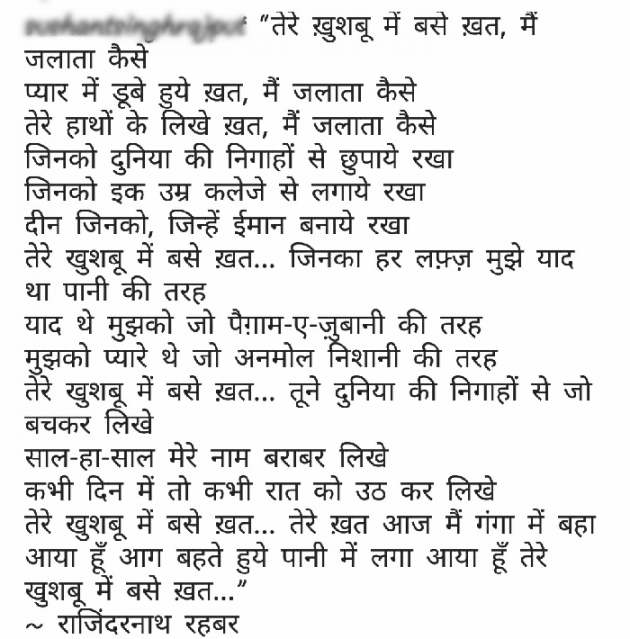 "तेरे ख़ुशबू में बसे ख़त, मैं
जलाता कैसे
प्यार में डूबे हुये ख़त, मैं जलाता कैसे
तेरे हाथों के लिखे ख़त, मैं जलाता कैसे
जिनको दुनिया की निगाहों से छुपाये रखा
जिनको इक उम्र कलेजे से लगाये रखा
दीन जिनको, जिन्हें ईमान बनाये रखा
तेरे खुशबू में बसे ख़त... जिनका हर लफ़्ज़ मुझे याद
था पानी की तरह
याद थे मुझको जो पैग़ाम-ए-ज़ुबानी की तरह
मुझको प्यारे थे जो अनमोल निशानी की तरह
तेरे खुशबू में बसे ख़त... तूने दुनिया की निगाहों से जो
बचकर लिखे
साल-हा-साल मेरे नाम बराबर लिखे
कभी दिन में तो कभी रात को उठ कर लिखे
तेरे खुशबू में बसे ख़त... तेरे ख़त आज मैं गंगा में बहा
आया हूँ आग बहते हुये पानी में लगा आया हूँ तेरे
खुशबू में बसे ख़त..."
~ राजिंदरनाथ रहबर